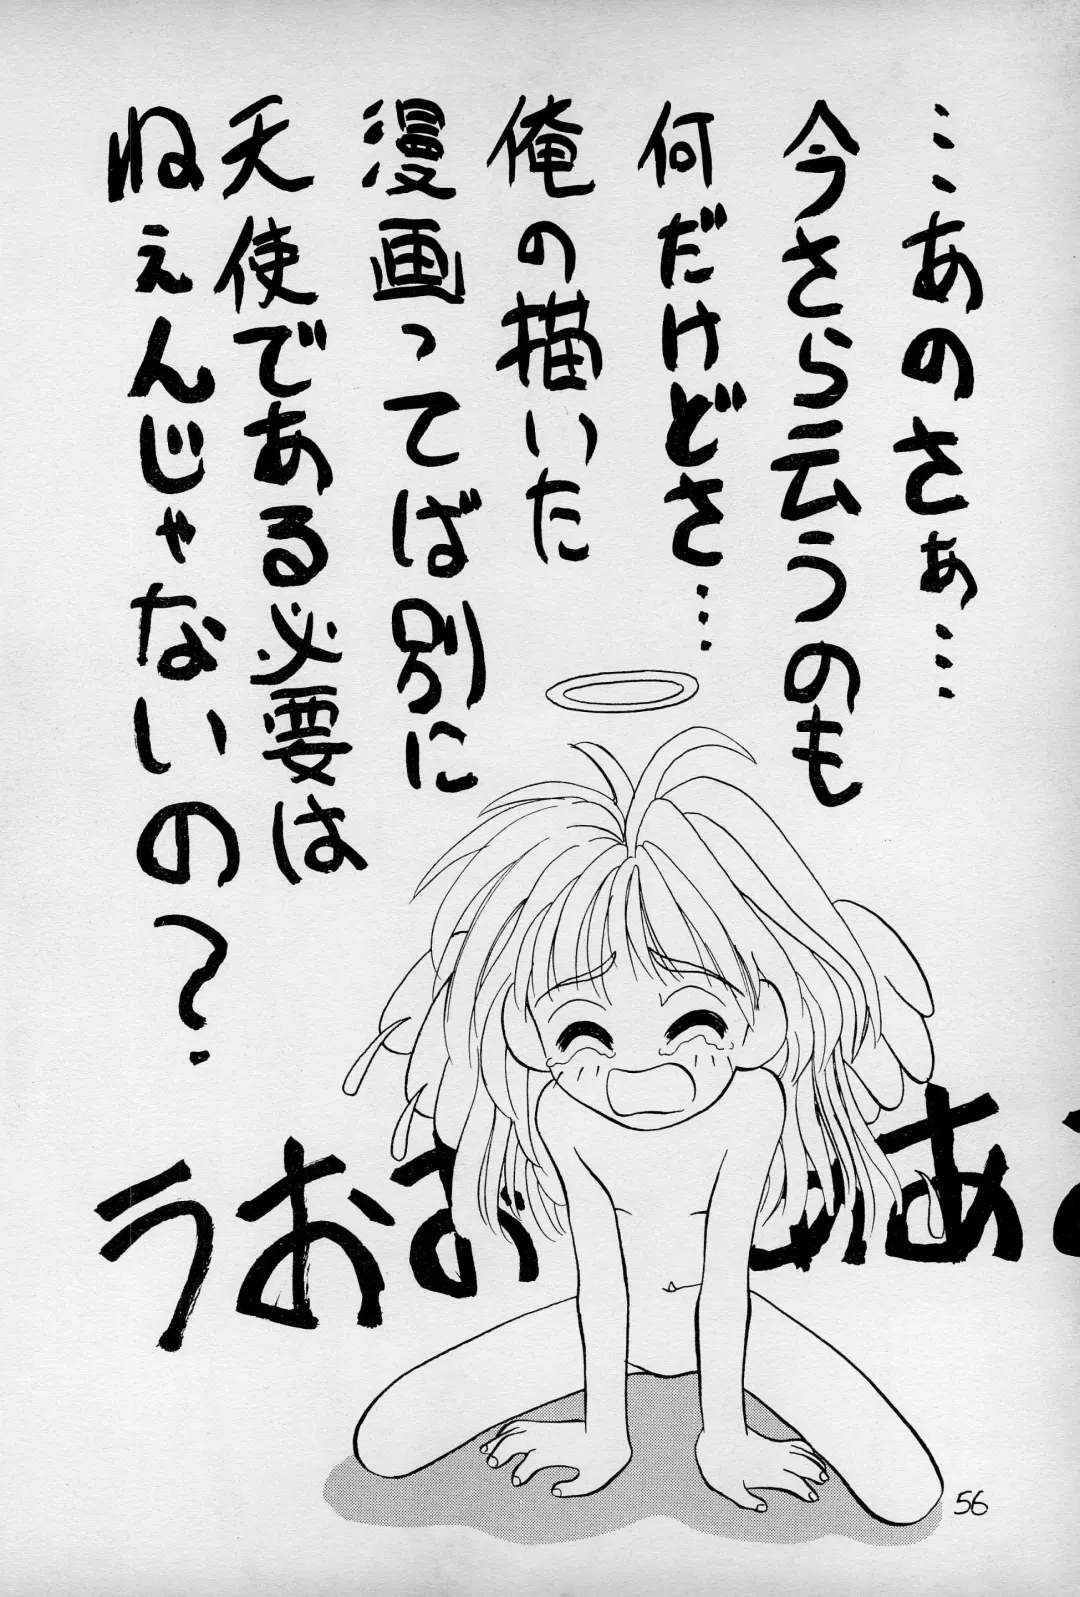 …あのさぁ…
今さら云うのも
何だけどさ…
俺の描いた
漫画ってば別に
天使である必要は
ねぇんじゃないの?
うおお
ああ
56